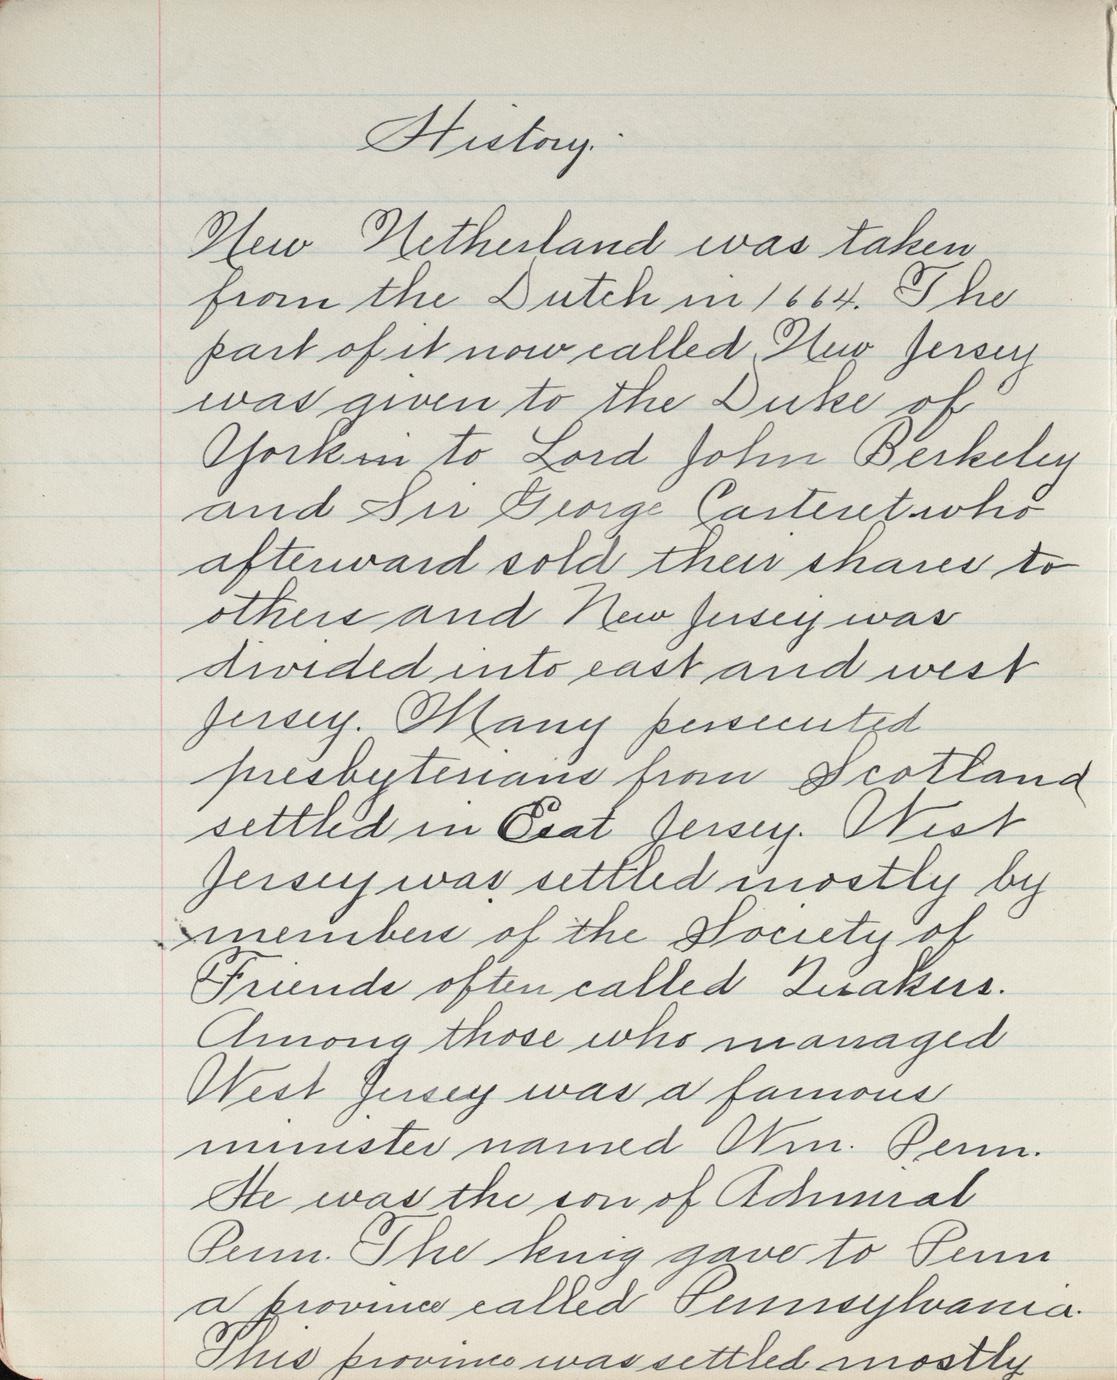 History.
New Netherland was taken
from the Dutch in 1664. The
part of it now called New Jersey
was given to the Duke of
York in to Lord John Berkeley
and Sir George Carteret who
afterward sold their shares to
others and New Jersey was
divided into east and west
Jersey. Many persecuted
presbyterians from Scotland
settled in Esat Jersey. West
Jersey was settled mostly by
members of the Society of
Friends often called Quakers.
Among those who managed
West Jersey was a famous
minister named Wm. Penn.
He was the son of Admiral
Penn. The knig gave to Penn
a province called Pennsylvania.
This province was settled mostly